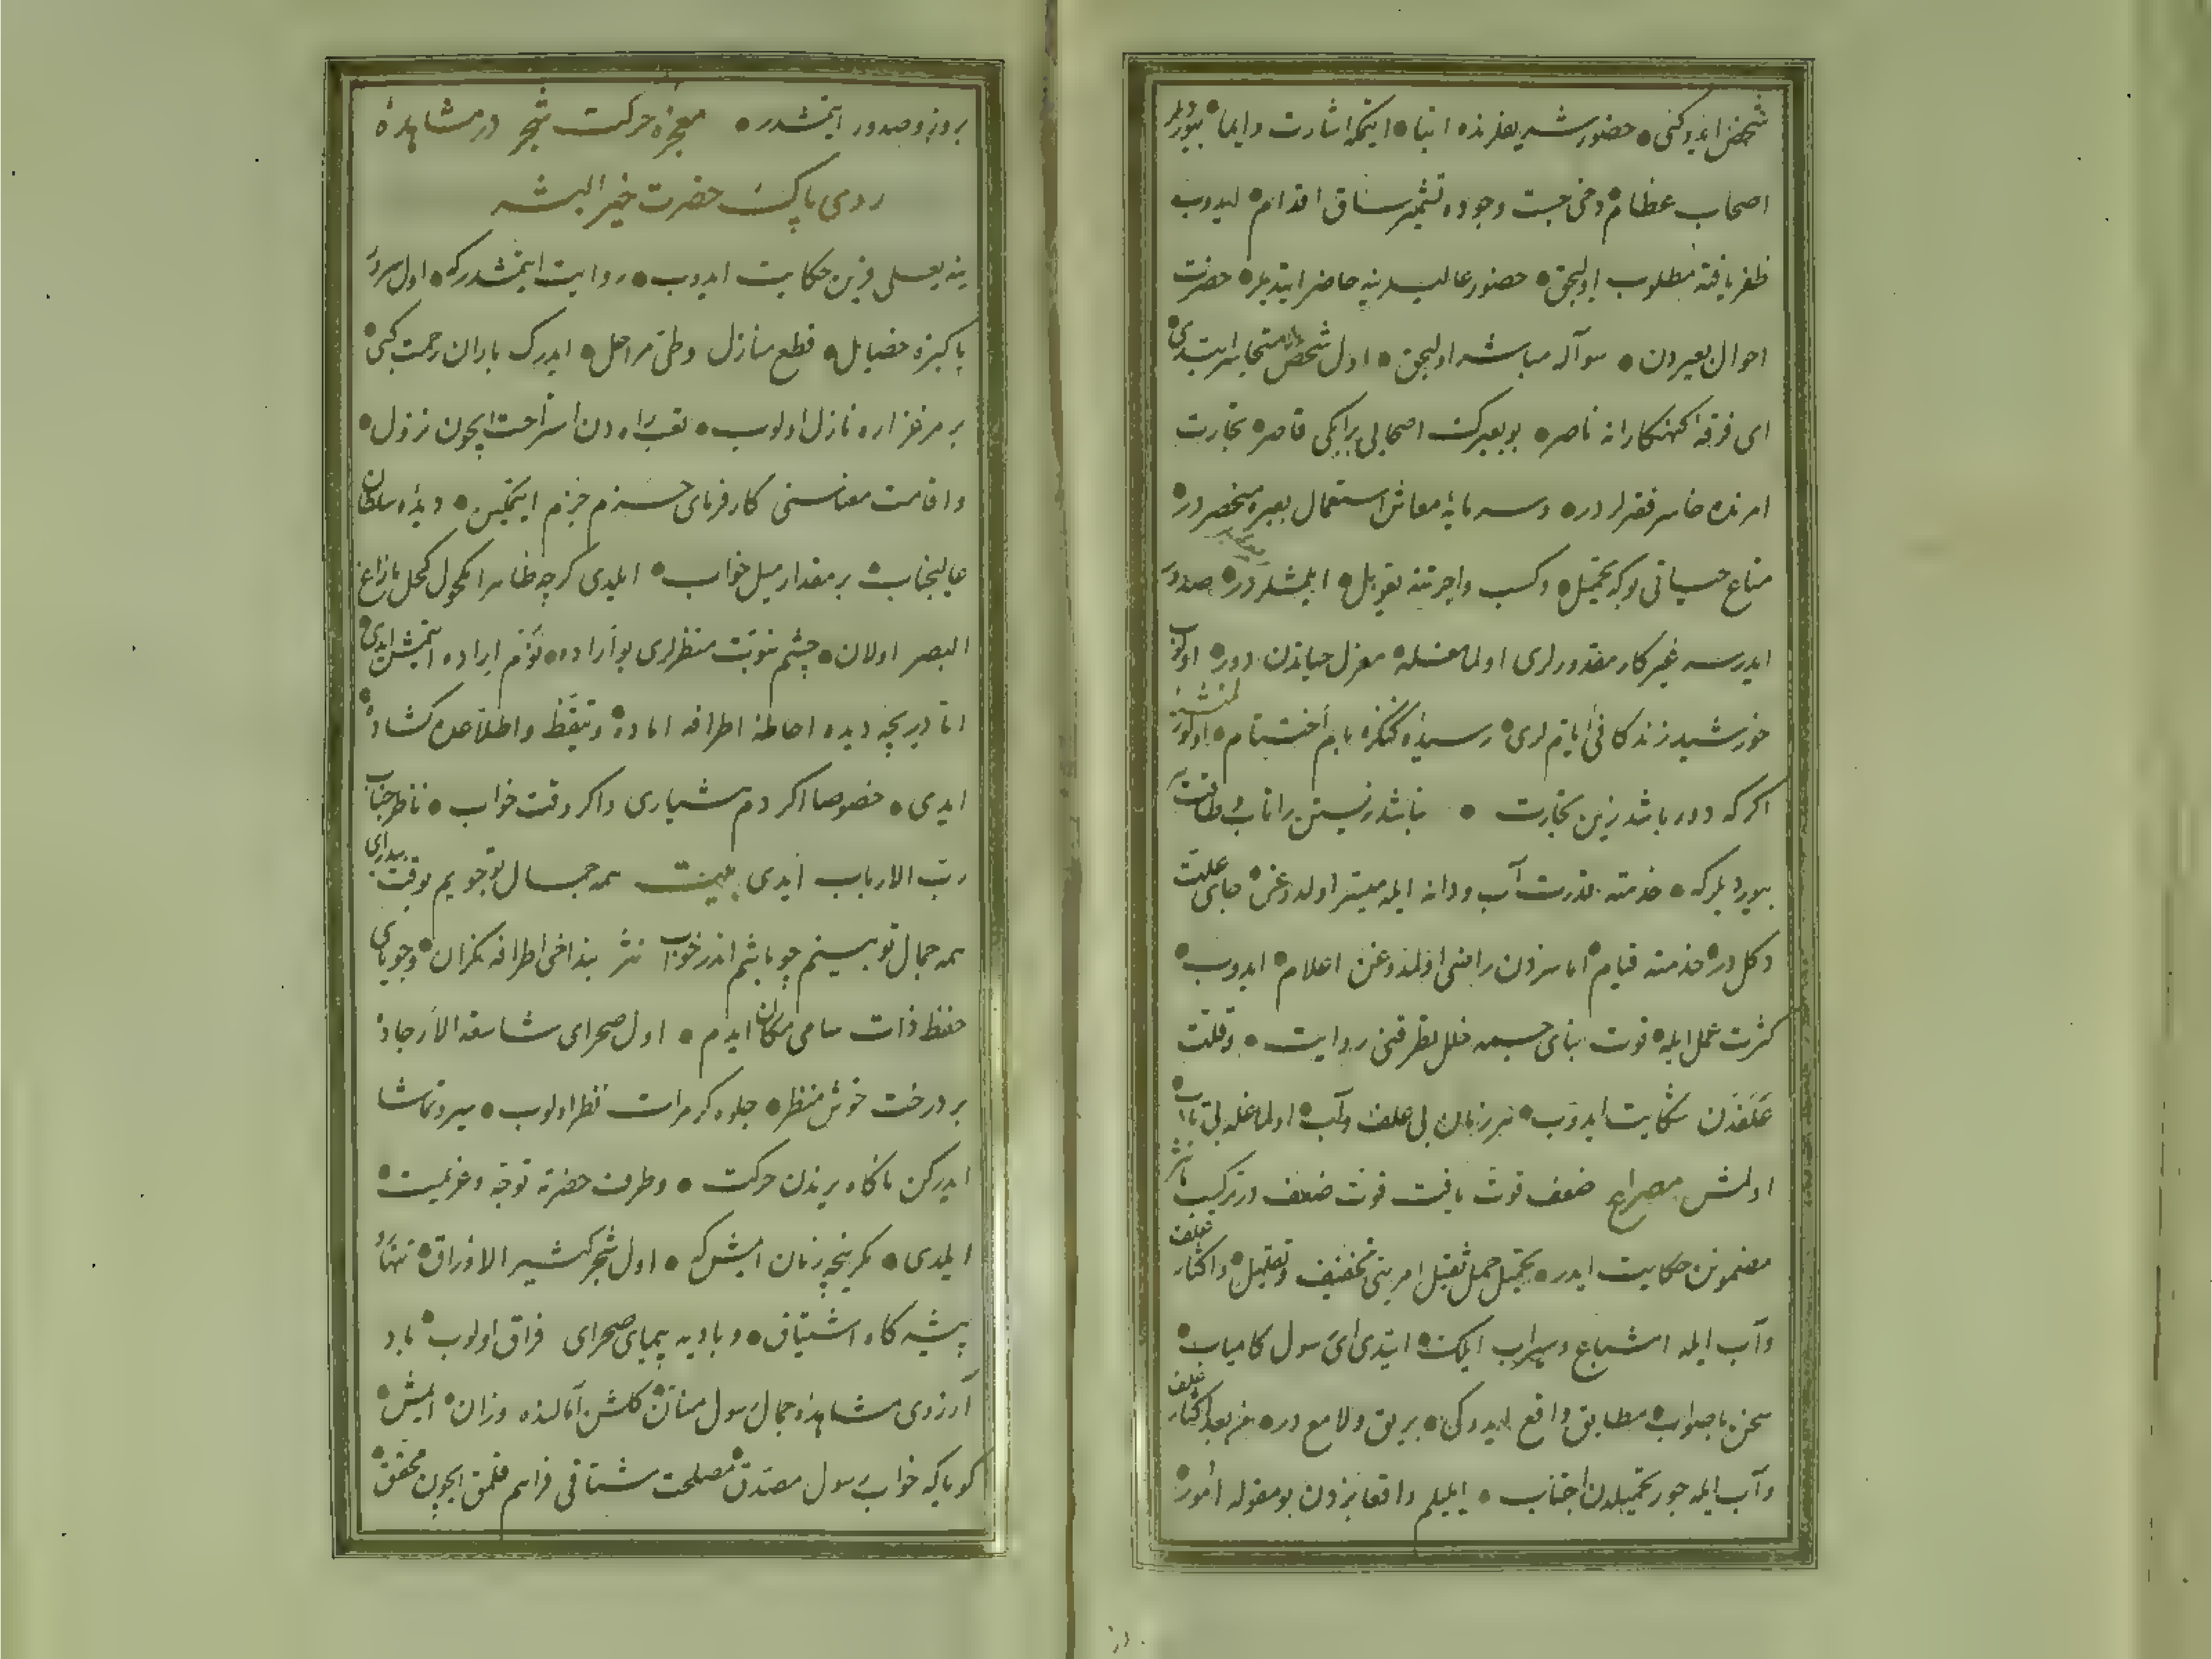 شخص ایدوکنی • حضور شریفلرنده انبا • ایتمکه اشارت وایما • بیوردیلر
اصحاب عظام • دخی جست وجوده تشمیر ساق اقدام • ایدوب
ظفر یافتهٔ مطلوب اولیجق • حضور عالیلرینه حاضر ایتدیلر • حضرت
احوال بعیردن • سؤاله مباشر اولیجق • اول شخص متجاسر ایتدی •
ای فرقهٔ کنهکارانه ناصر • بو بعیرک اصحابی برایکی قاصر • تجارت
امرنده خاسر فقرلر در • وسرمایهٔ معاش استعمال بعیره منحصر در •
متاع حیاتی بوکه تحمیل • وکسب واجرتنه تعویل • ایلمشلر در • صدور
ایدرسه غیر کار مقدورلری اولمامغله • معزل حیاتدن دور • اولوب
خورشید زندکانئ ایام لری • رسیدهٔ کنکرهٔ بام اختتام • اولور
اکر که دور باشد زین تجارت • نباشد زیستن را تاب و طاقت
بیوردیلرکه • خدمته قدرت آب ودانه ایله میسر اولدوغی • جای علت
دکل در • خدمته قیام • اما سزدن راضی اولمدوغن اعلام • ایدوب
کثرت عمل ایله • قوت بنای جسمه خلل تطرقنی روایت • وقلت
علفدن شکایت ایدوب • هر زمان بی علف وآب • اولمامغله بی تاب •
اولمش مصراع ضعف قوت یافت قوت ضعف در ترکیب
مضموننی حکایت ایدر • تحمیل حمل ثقیل امرینی تخفیف وتقلیل • واکثار علف
وآب ایله اشباع وسیراب ایلمک • ایتدی ای رسول کامیاب •
سخن باصواب • مطابق واقع ایدوکی • بریق ولامع در • من بعد اکثار علف
وآب ایله جور تحمیلدن اجتناب • ایلیلم واقعا بزدن بو مقوله امور •
بروز وصدور ایتمشدر • معجزهٔ حرکت شجر در مشاهدهٔ
روی پاک حضرت خیر البشر
ینه یعلی فزین حکایت ایدوب • روایت ایتمشدرکه • اول سرور
پاکیزه خصایل • قطع منازل وطی مراحل • ایدرک باران رحمت کبی •
بر مرغزاره نازل اولوب • تعب راهدن استراحت ایچون نزول •
واقامت معناسنی کارفرمای حزم جزم ایتمکین • دیدهٔ سلطان
عالیجناب • بر مقدار میل خواب • ایلدی کرچه ظاهرا مکحول کحل مازاغ
البصر اولان • چشم نبوت منظرلری بو اراده • نوم ایراده ایتمش ایدی •
اما دریچه دیده احاطهٔ اطرافه اماده • وتیقظ واطلاعده کشاده
ایدی • خصوصا اکر دم هشیاری واکر وقت خواب • ناظر جناب
رب الارباب ایدی بیت همه جمال تو جویم بوقت بیداری
همه جمال تو بینم چو باشم اندر خواب نثر بنداخی اطرافه نکران • وجویای
حفظ ذات سامی مکان ایدم • اول صحرای شاسعة الارجاده
بر درخت خوش منظر • جلوه کر مرات نظر اولوب • سیر وتماشا
ایدرکن ناکاه یرندن حرکت • وطرف حضرته توجه وعزیمت •
ایلدی • مکر نیجه زمان ایمش که • اول شجر کثیر الاوراق •
بیشه کاه اشتیاق • وبادیه پیمای صحرای فراق اولوب • باد
آرزوی مشاهدهٔ جمال رسول منان کلشن آمالنده وزان • ایمش •
کویاکه خواب رسول مصدق • مصلحت مشتاقی فراهم قلمق ایچون محقق •